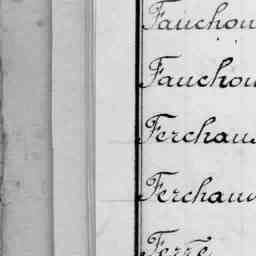 Fauchou
Fauchou
Ferchau
Ferchau
Ferré